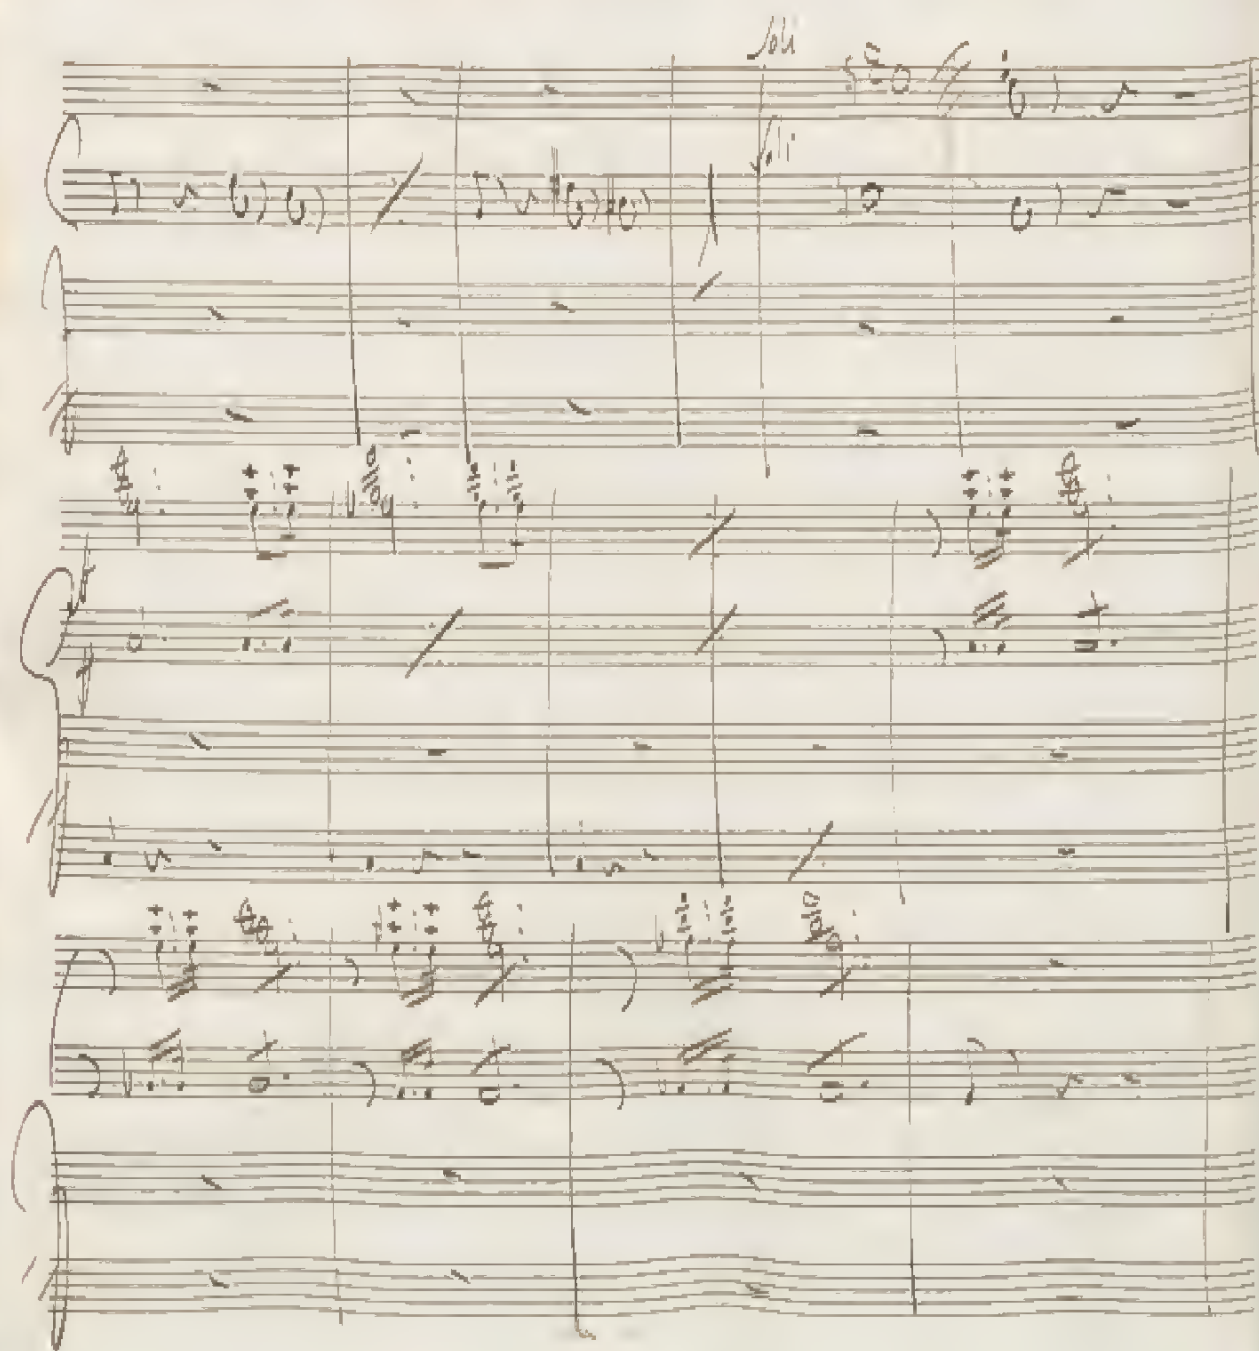 Soli
Soli